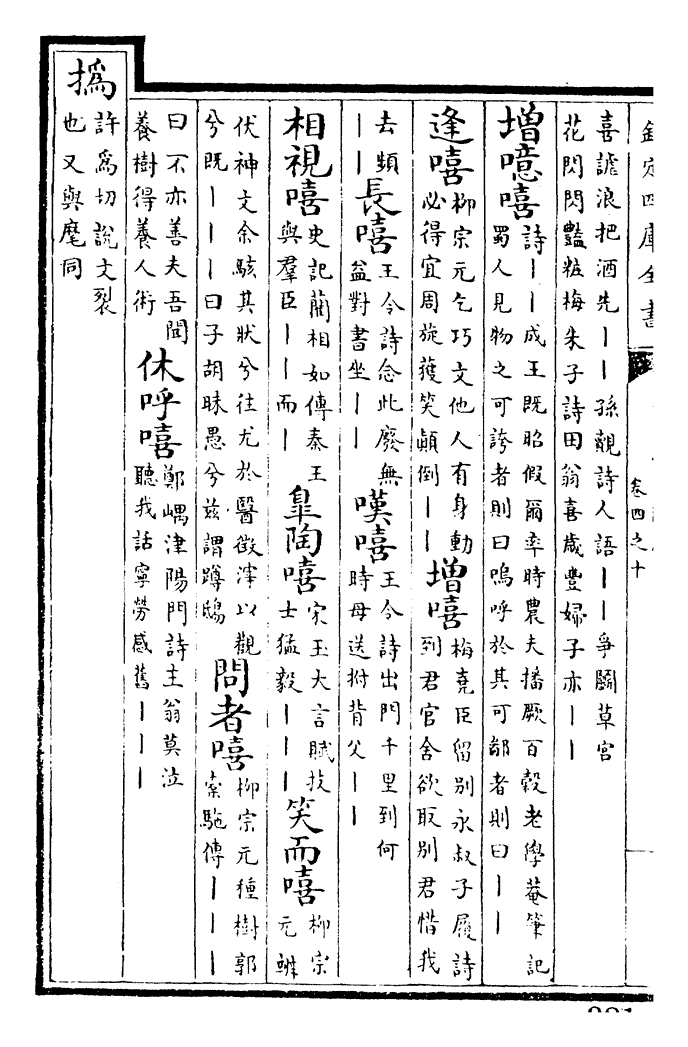 欽定四庫全書 卷四之十
喜謔浪把酒先丨丨孫覿詩人語丨丨爭鬭草宮
花閃閃豔粧梅朱子詩田翁喜歲豐婦子亦丨丨
增噫嘻
詩丨丨成王既昭假爾率時農夫播厥百穀老學菴筆記
蜀人見物之可誇者則曰嗚呼於其可鄙者則曰丨丨
逢嘻
柳宗元乞巧文他人有身動
必得宜周旋獲笑顛倒丨丨
增嘻
梅堯臣留別永叔子履詩
到君官舍欲取別君惜我
去頻
丨丨
長嘻
王令詩念此廢無
益對書坐丨丨
嘆嘻
王令詩出門千里到何
時母送拊背父丨丨
相視嘻
史記藺相如傳秦王
與羣臣丨丨而丨
皐陶嘻
宋玉大言賦技
士猛毅丨丨丨
笑而嘻
柳宗
元辨
伏神文余駭其狀兮往尤於醫徵滓以觀
兮既丨丨丨曰子胡昧愚兮兹謂蹲鴟
問者嘻
柳宗元種樹郭
橐駝傳丨丨丨
曰不亦善夫吾聞
養樹得養人術
休呼嘻
鄭嵎津陽門詩主翁莫泣
聽我話寧勞感舊丨丨丨
撝
許為切說文裂
也又與麾同